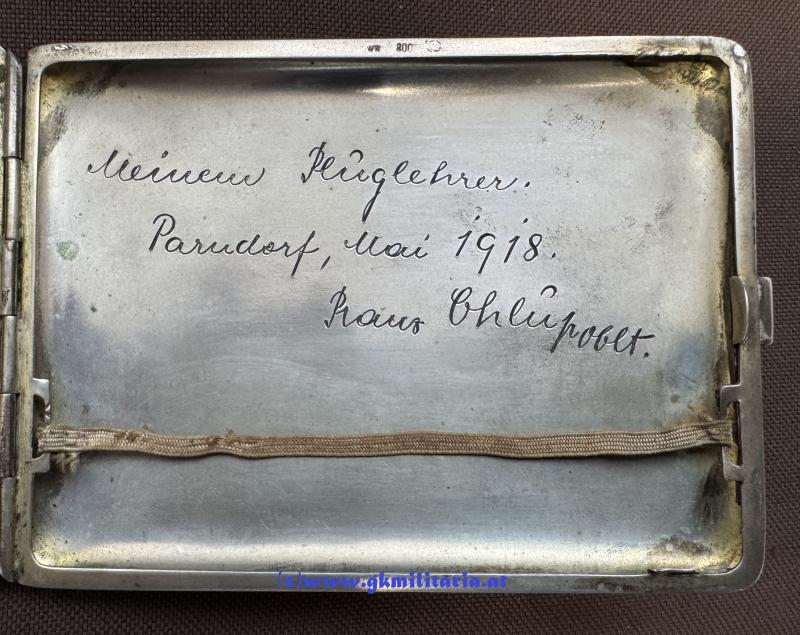 WR 800
Meinem Fluglehrer.
Parndorf, Mai 1918.
Franz Chlup oblt.
(c)www.gkmilitaria.at